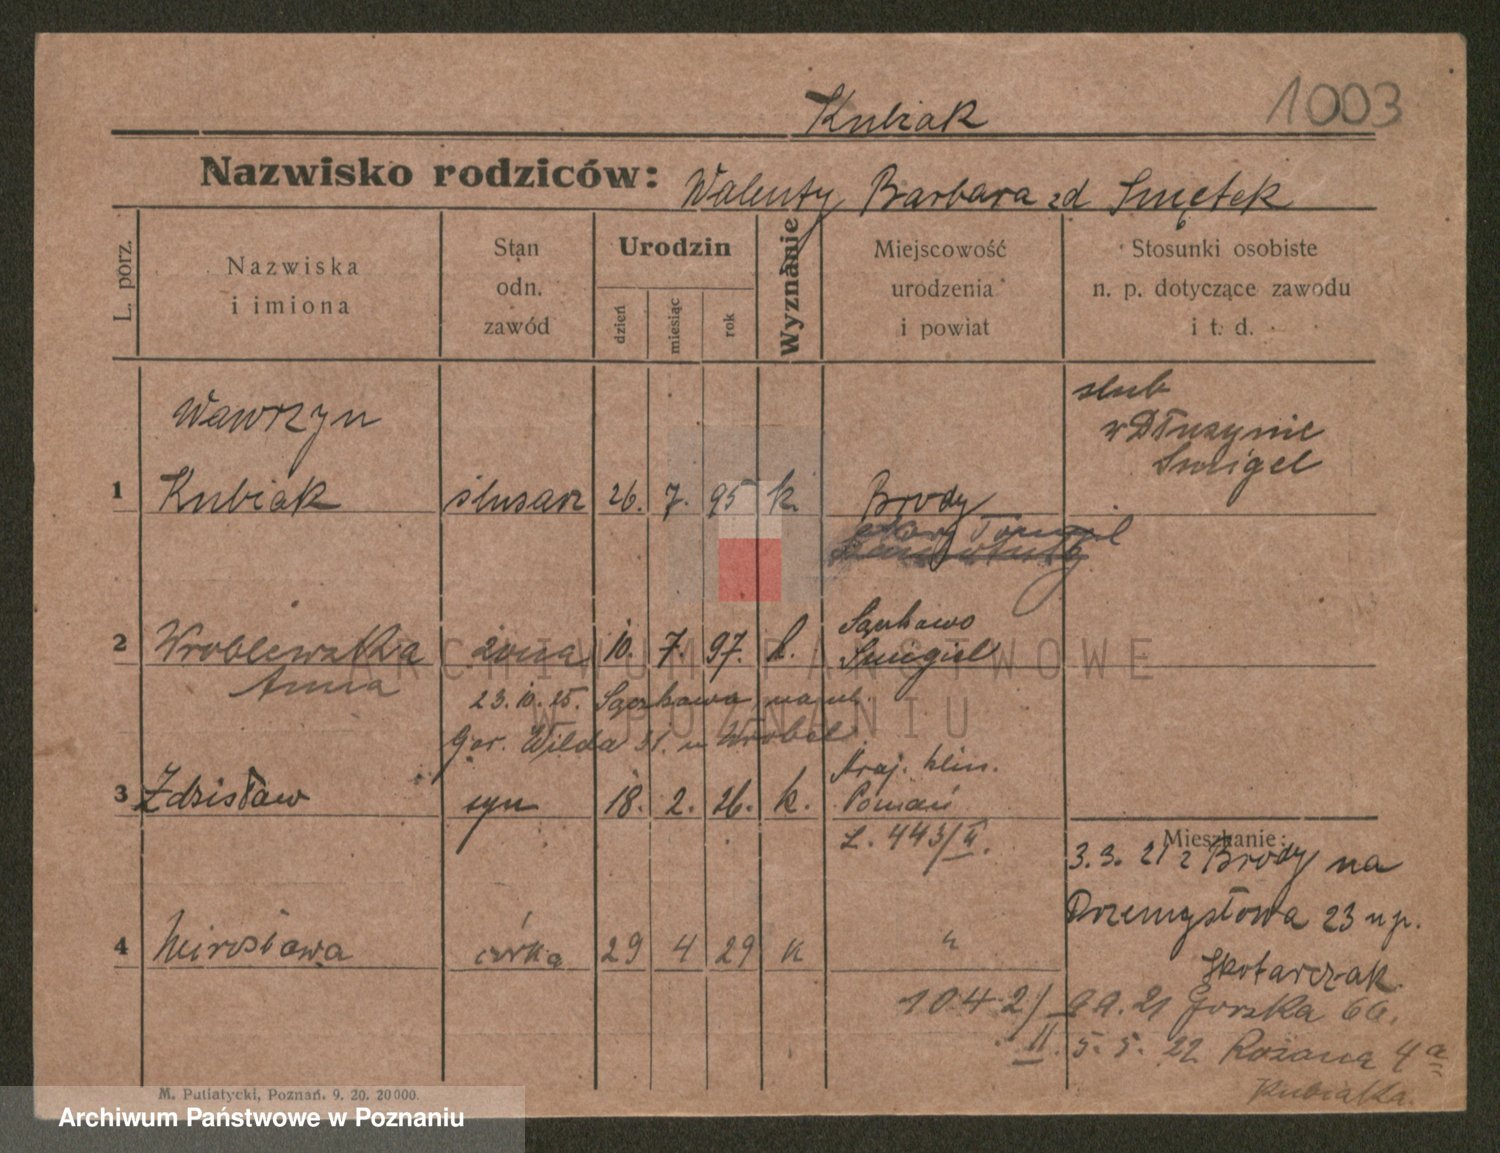 1003
Kubiak
Nazwisko rodziców: Walenty Barbara zd Smętek
L. porz.
Nazwiska
i imiona
Stan
odn.
zawód
Urodzin
dzień
miesiąc
rok
Wyznanie
Miejscowość
urodzenia
i powiat
Stosunki osobiste
n. p. dotyczące zawodu
i t. d.
ślub
w Dłużynie
Śmigel
Wawrzyn
1 Kubiak ślusarz 26. 7. 95 k. Brody
Sączkowo
2 Wroblewska żona 10. 7. 97. k. Śmigiel
Anna
23. 10. 25. Sączkowa
Gor. Wilda 31. u Wrobel.
Kraj. klin.
3 Zdzisław syn 18. 2. 26. k. Poznań
L. 443/II.
Mieszkanie:
3. 3. 21 z Brody na
Przemysłowa 23 u p.
4 Mirosława córka 29 4 29 k "
Skotarczak.
1042/II.
21 Gorska 6a.
5. 5. 22 Rożana 4a
Kubiaka.
M. Putiatycki, Poznań. 9. 20. 20000.
ARCHIWUM PAŃSTWOWE
W POZNANIU
Archiwum Państwowe w Poznaniu